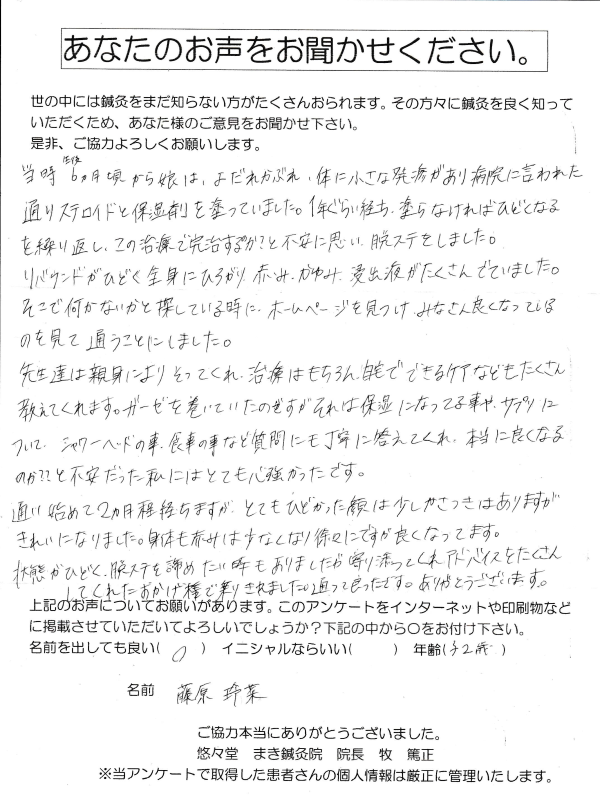 あなたのお声をお聞かせください。
世の中には鍼灸をまだ知らない方がたくさんおられます。その方々に鍼灸を良く知って
いただくため、あなた様のご意見をお聞かせ下さい。
是非、ご協力よろしくお願いします。
当時 生後6ヵ月頃から娘は、よだれかぶれ、体に小さな発疹があり病院に言われた
通りステロイドと保湿剤を塗っていました。1年ぐらい経ち、塗らなければひどくなる
を繰り返し、この治療で完治するか?と不安に思い、脱ステをしました。
リバウンドがひどく全身にひろがり、赤み、かゆみ、浸出液がたくさんでていました。
そこで何かないかと探している時に、ホームページを見つけ、みなさん良くなっている
のを見て通うことにしました。
先生達は親身によりそってくれ、治療はもちろん、自宅でできるケアなどもたくさん
教えてくれます。ガーゼを巻いていたのですがそれは保湿になってる事や、サプリに
ついて、シャワーヘッドの事、食事の事など質問にも丁寧に答えてくれ、本当に良くなる
のか??と不安だった私にはとても心強かったです。
通い始めて2ヵ月程経ちますが、とてもひどかった顔は少しかさつきはありますが
きれいになりました。身体も赤みは少なくなり徐々にですが良くなってます。
状態がひどく、脱ステを諦めたい時もありましたが寄り添ってくれアドバイスをたくさん
してくれたおかげ様で乗りきれました。通って良ったです。ありがとうございます。
上記のお声についてお願いがあります。このアンケートをインターネットや印刷物など
に掲載させていただいてよろしいでしょうか?下記の中から○をお付け下さい。
名前を出しても良い( ○ ) イニシャルならいい( ) 年齢(子2歳 )
名前 藤原 玲菜
ご協力本当にありがとうございました。
悠々堂 まき鍼灸院 院長 牧 篤正
※当アンケートで取得した患者さんの個人情報は厳正に管理いたします。